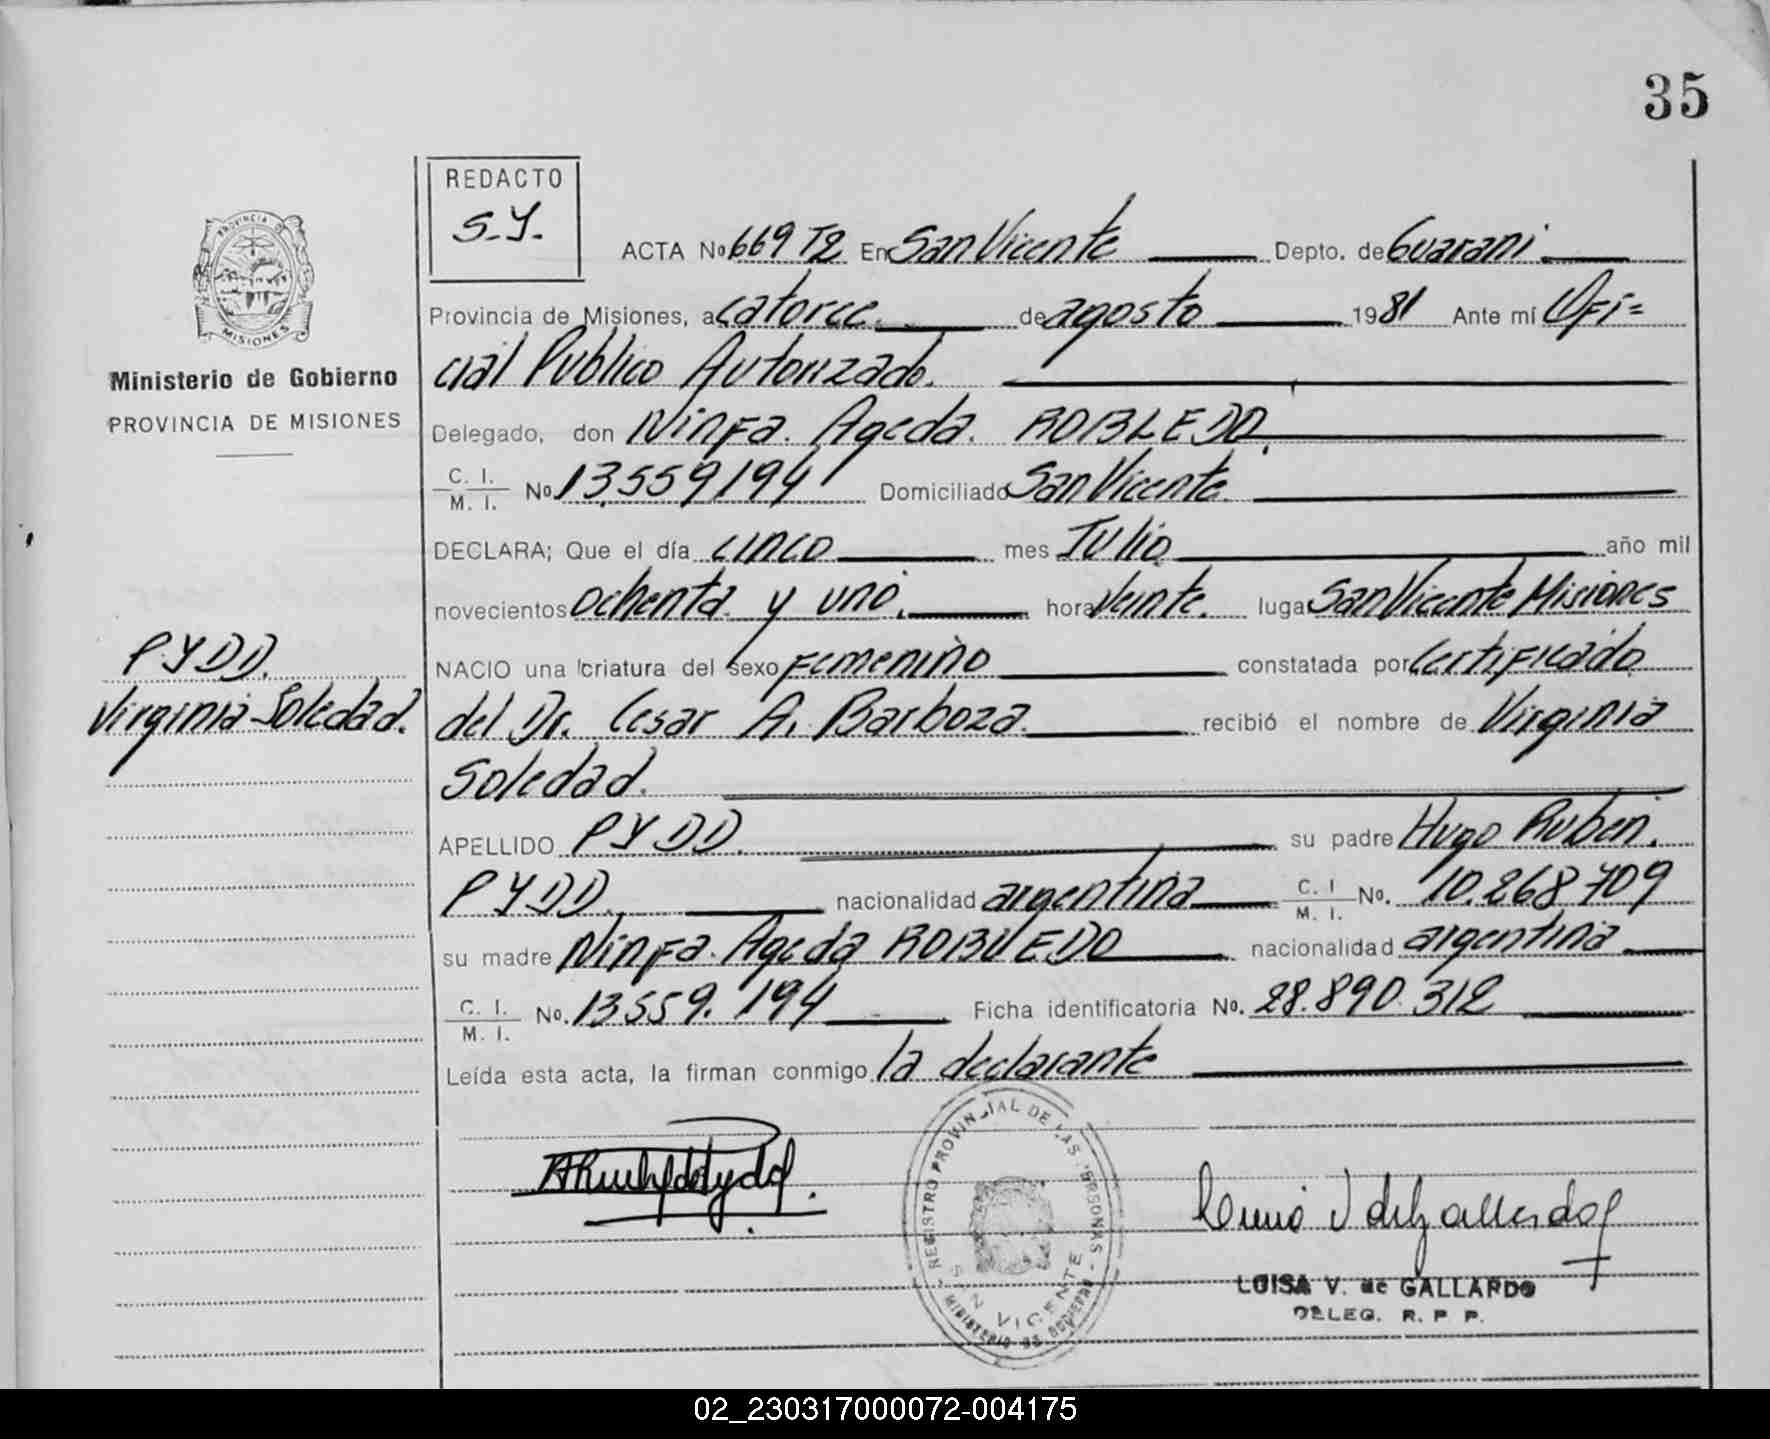 35
REDACTO
S.Y.
ACTA No 669 T2 En San Vicente Depto. de Guarani
Provincia de Misiones, a catorce. de agosto 1981 Ante mí Ofi=
cial Publico Autorizado.
Delegado, don Ninfa. Ageda. ROBLEDO.
C. I.
M. I. No 13.559194 Domiciliado San Vicente.
DECLARA; Que el día cinco mes Julio año mil
novecientos ochenta y uno. hora veinte. lugar San Vicente Misiones
NACIO una criatura del sexo Femenino constatada por Certificado
del Dr. Cesar A. Barboza. recibió el nombre de Virginia
Soledad.
APELLIDO PYDD. su padre Hugo Ruben.
PYDD. nacionalidad argentina C. I.
M. I. No. 10.268709
su madre Ninfa. Ageda ROBLEDO nacionalidad argentina
C. I.
M. I. No. 13559.194 Ficha identificatoria No. 28.890.312
Leída esta acta, la firman conmigo la declarante
PROVINCIA DE
MISIONES
Ministerio de Gobierno
PROVINCIA DE MISIONES
PYDD.
Virginia Soledad.
REGISTRO PROVINCIAL DE LAS PERSONAS
SAN VICENTE
MINISTERIO DE GOBIERNO
LUISA V. de GALLARDO
DELEG. R. P. P.
02_230317000072-004175